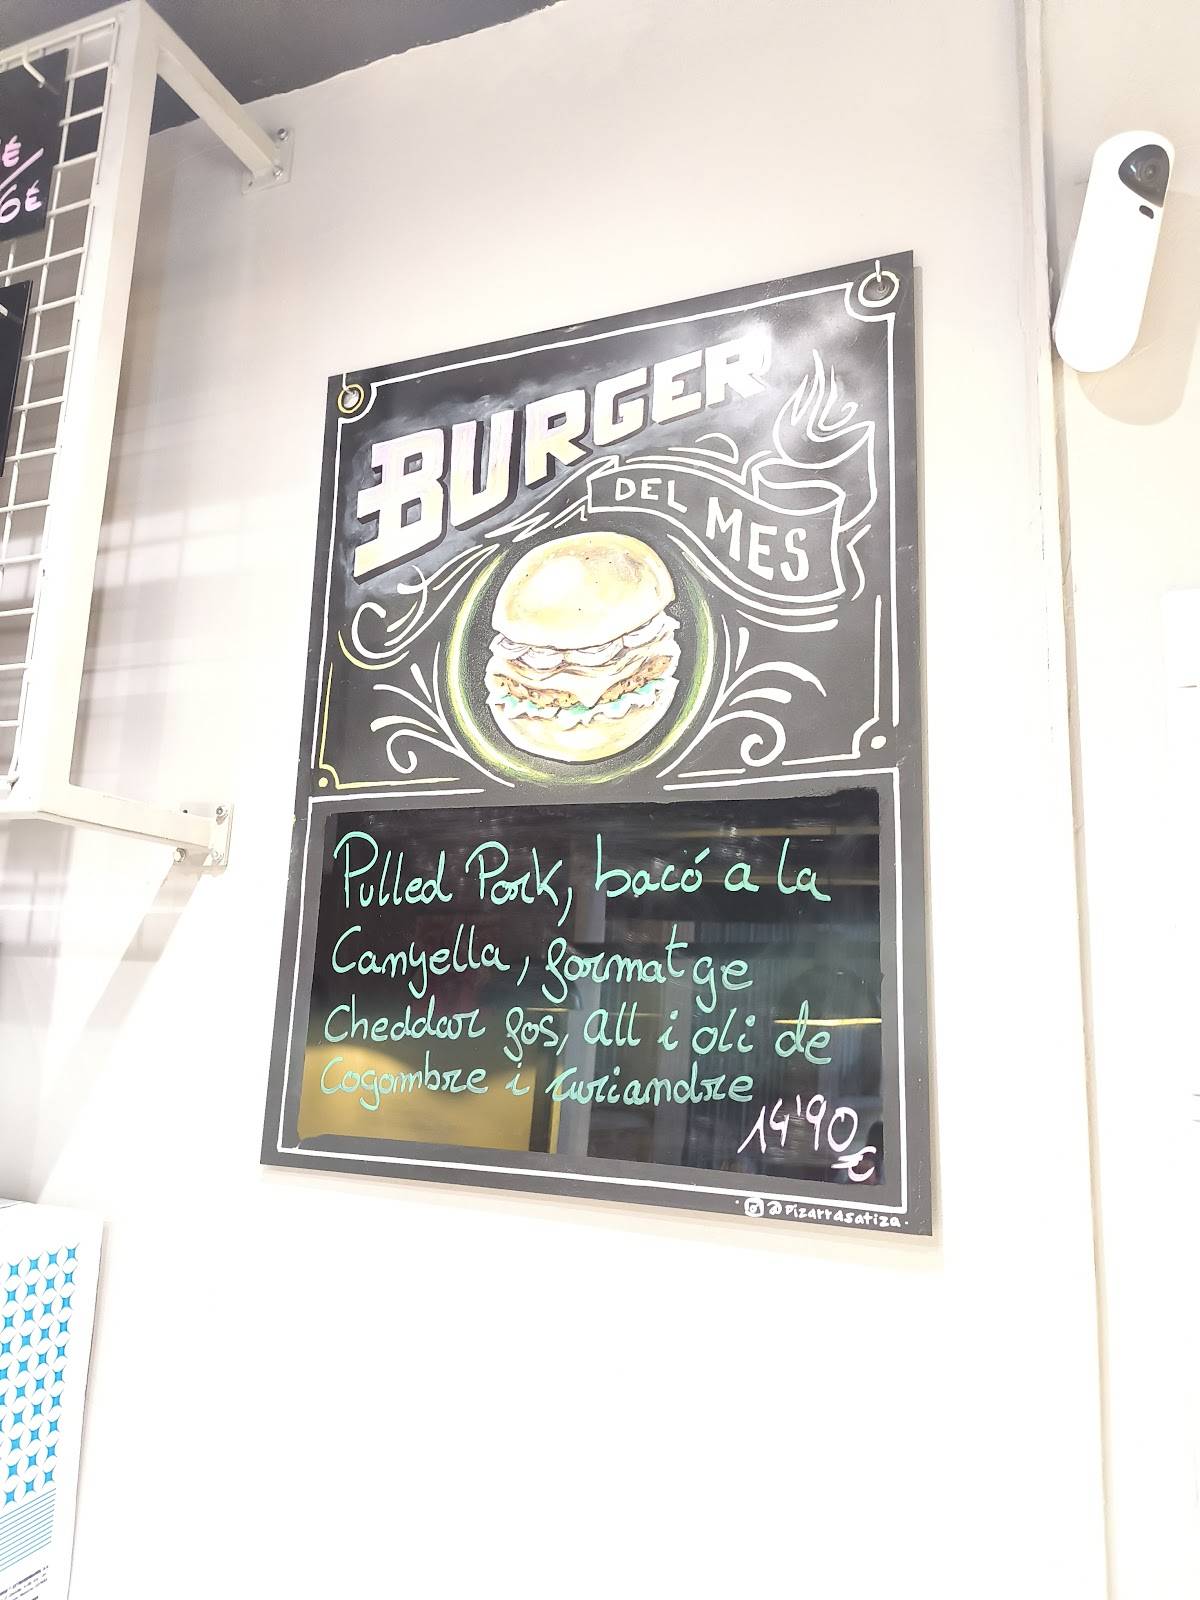 6€
BURGER
DEL MES
Pulled Pork, bacó a la
Canyella, formatge
Cheddar fos, all i oli de
Cogombre i curiandre
14'90
€
@pizarrasatiza